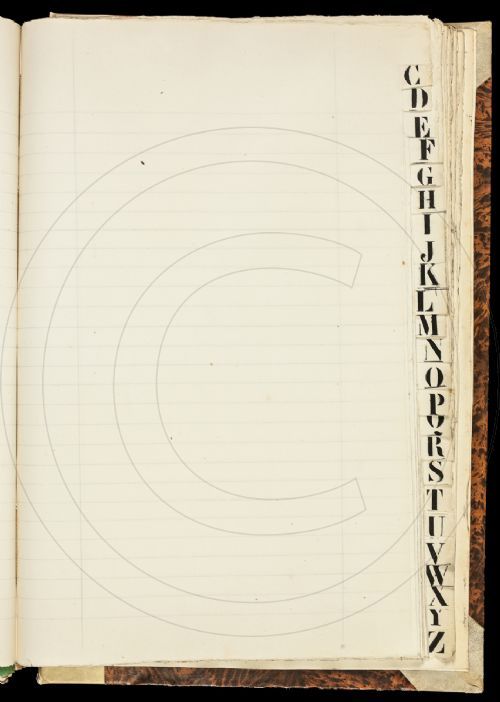 C
D
E
F
G
H
I
J
K
L
M
N
O
P
Q
R
S
T
U
V
W
X
Y
Z